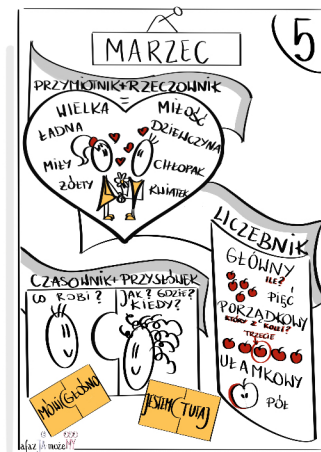 MARZEC
5
PRZYMIOTNIK+RZECZOWNIK
=
WIELKA MIŁOŚĆ
ŁADNA DZIEWCZYNA
MIŁY CHŁOPAK
ŻÓŁTY KWIATEK
LICZEBNIK
GŁÓWNY
ILE?
PIĘĆ
PORZĄDKOWY
KTÓRY Z KOLEI?
TRZECIE
UŁAMKOWY
PÓŁ
CZASOWNIK+PRZYSŁÓWEK
CO ROBI?
JAK? GDZIE?
KIEDY?
MÓWIĆ GŁOŚNO
JESTEM TUTAJ
JA może MY